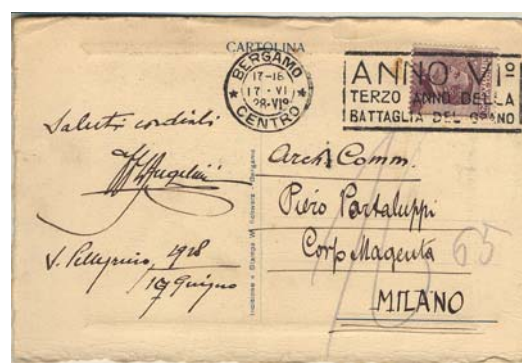 CARTOLINA
BERGAMO
CENTRO
17-18
17·VI
28·VIº
ANNO VIº
TERZO ANNO DELLA
BATTAGLIA DEL GRANO
Saluti cordiali
Angelini
S. Pellegrino, 1928
17 Giugno
Incisione e Stampa
Bergamo
Arch. Comm.
Piero Portaluppi
Corso Magenta 65
MILANO